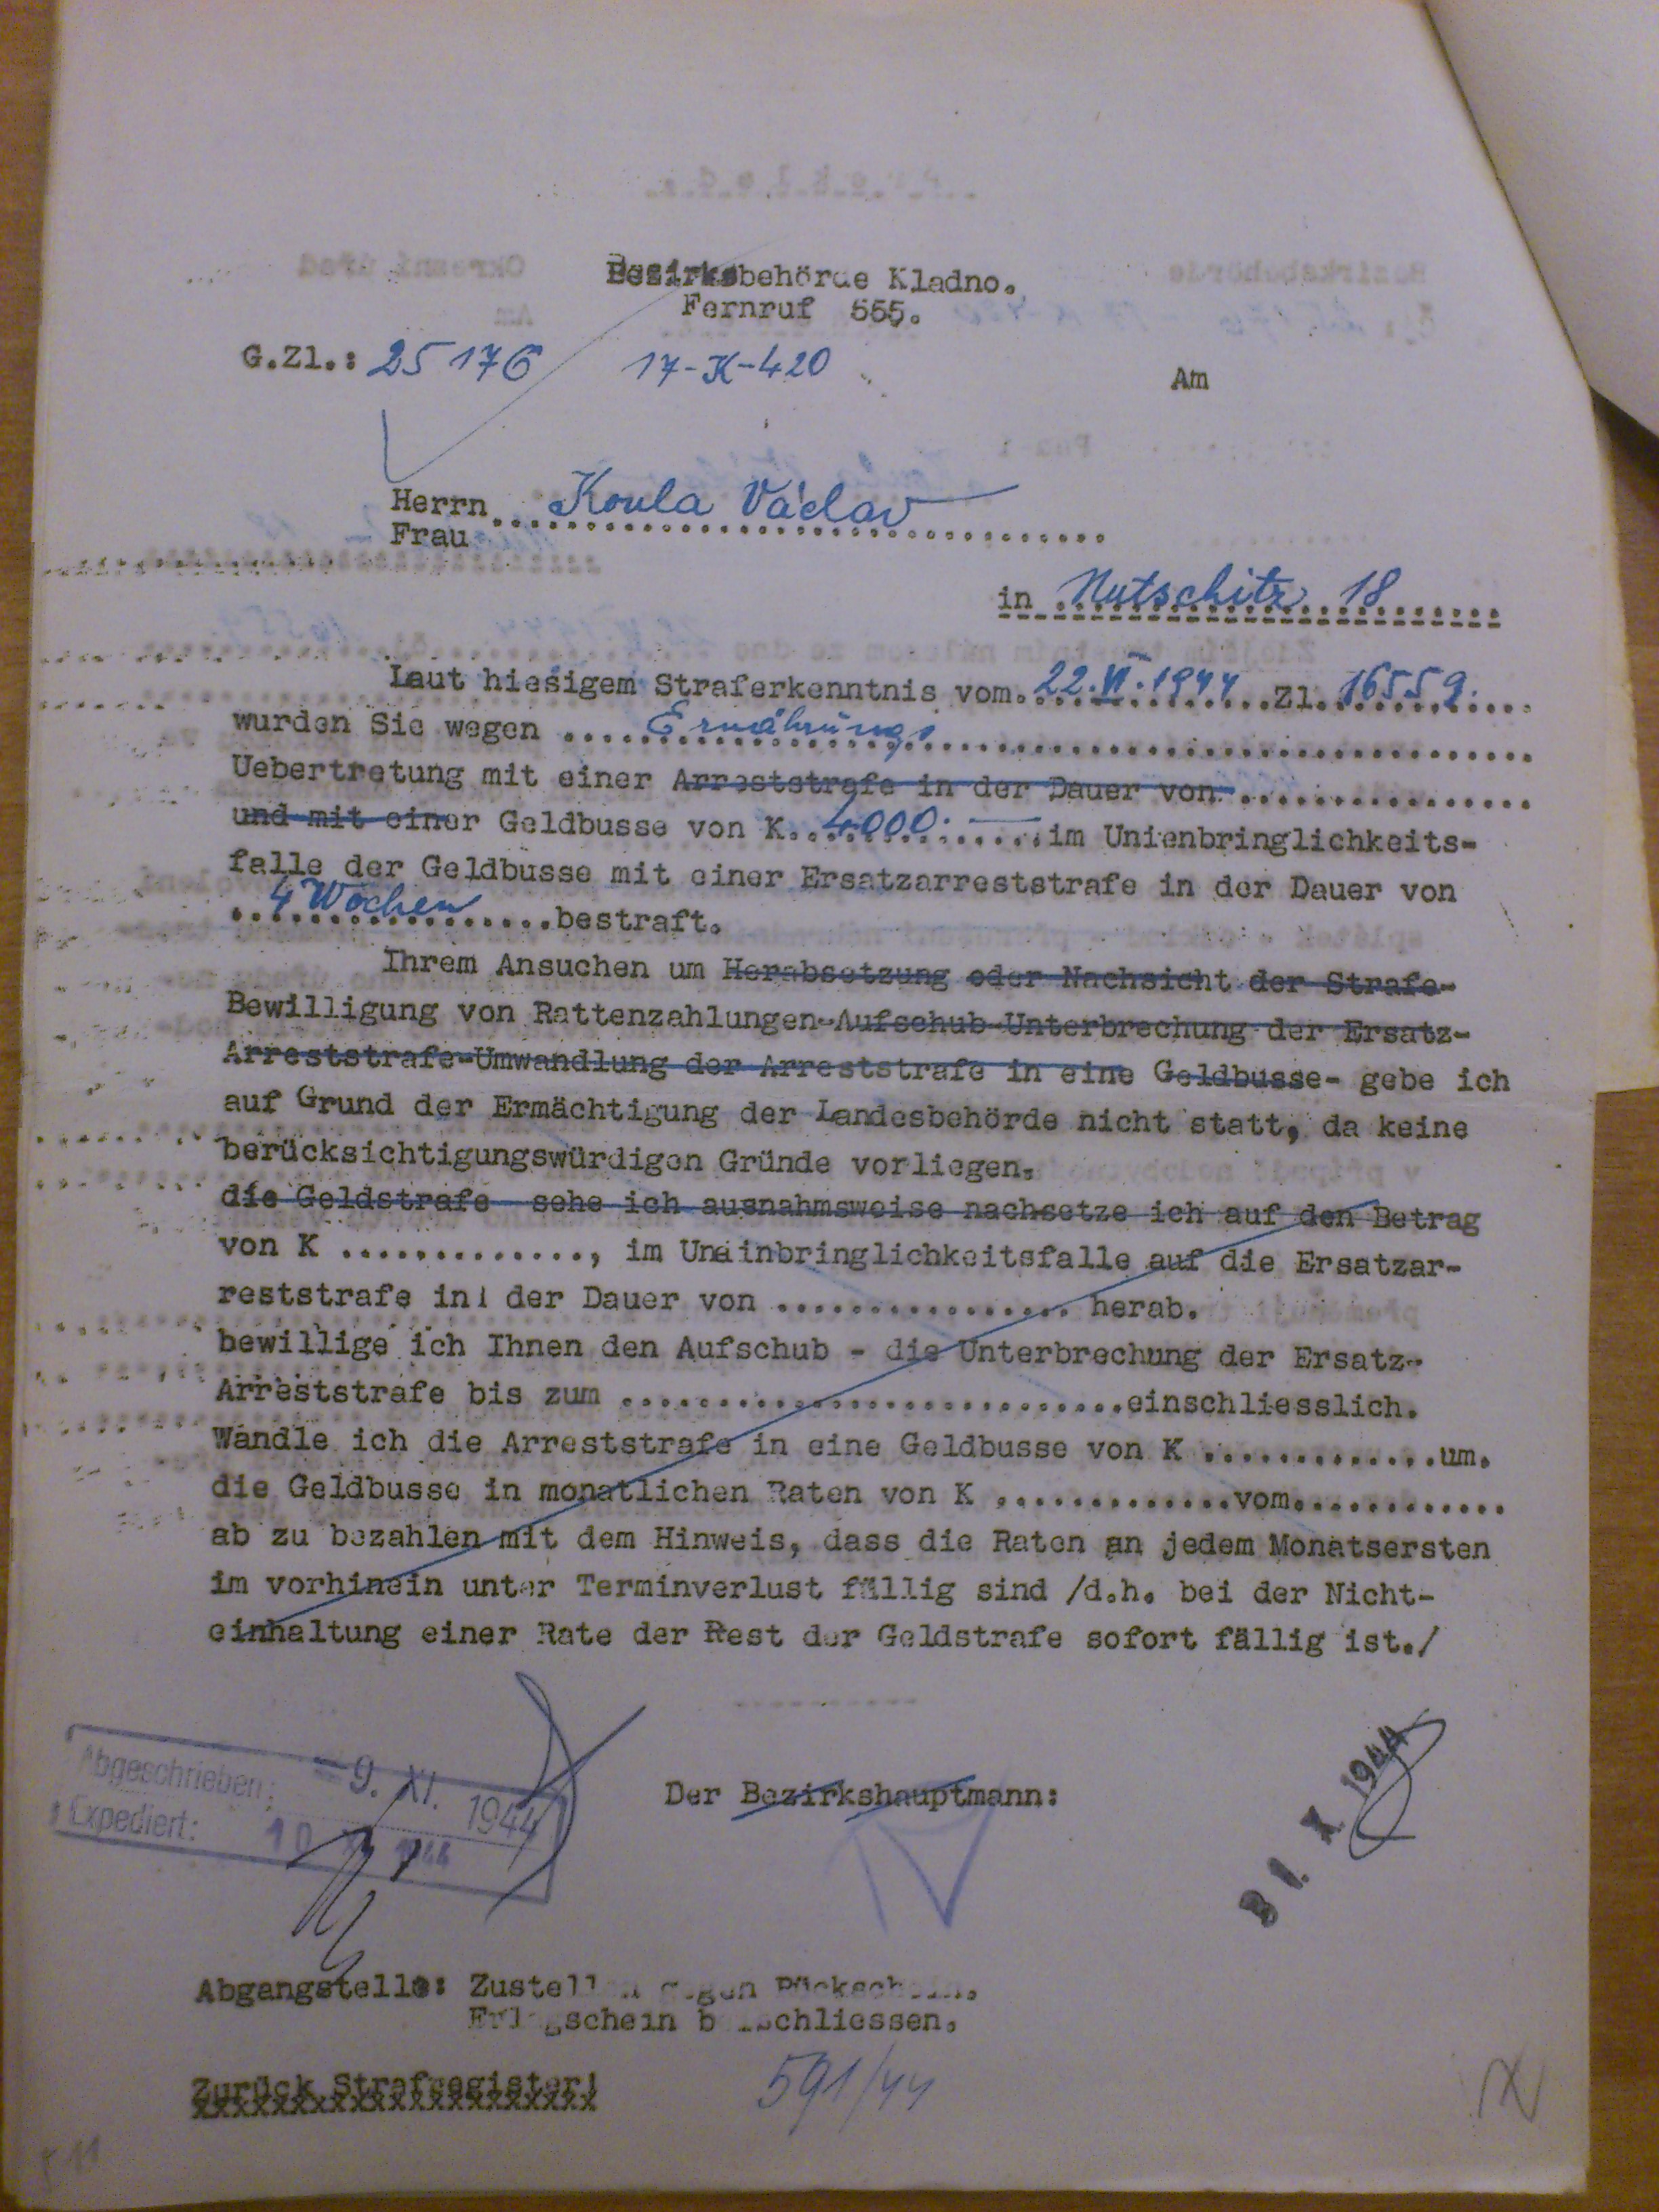 Bezirksbehörde Kladno.
Fernruf 555.
G.Zl.: 25176 17-K-420
Am
Herrn
Frau Koula Václav
in Nutschitz 18
Laut hiesigem Straferkenntnis vom 22.VI.1944 Zl. 16559.
wurden Sie wegen Ernährungs
Uebertretung mit einer Arreststrafe in der Dauer von
und mit einer Geldbusse von K. 4000.— im Unienbringlichkeits-
falle der Geldbusse mit einer Ersatzarreststrafe in der Dauer von
4 Wochen bestraft.
Ihrem Ansuchen um Herabsetzung oder Nachsicht der Strafe-
Bewilligung von Rattenzahlungen-Aufschub-Unterbrechung der Ersatz-
Arreststrafe-Umwandlung der Arreststrafe in eine Geldbusse- gebe ich
auf Grund der Ermächtigung der Landesbehörde nicht statt, da keine
berücksichtigungswürdigen Gründe vorliegen.
die Geldstrafe sehe ich ausnahmsweise nachsetze ich auf den Betrag
von K .............., im Uneinbringlichkeitsfalle auf die Ersatzar-
reststrafe in der Dauer von ................. herab.
bewillige ich Ihnen den Aufschub - die Unterbrechung der Ersatz-
Arreststrafe bis zum .............................einschliesslich.
Wandle ich die Arreststrafe in eine Geldbusse von K .............um.
die Geldbusse in monatlichen Raten von K .............vom............
ab zu bezahlen mit dem Hinweis, dass die Raten an jedem Monatsersten
im vorhinein unter Terminverlust fällig sind /d.h. bei der Nicht-
einhaltung einer Rate der Rest der Geldstrafe sofort fällig ist./
Abgeschrieben: -9. XI. 1944
Expediert: 10 1944
Der Bezirkshauptmann:
31. X. 1944
Abgangstelle: Zustellen gegen Rückschein.
Erlagschein beischliessen.
Zurück Strafregister!
591/44